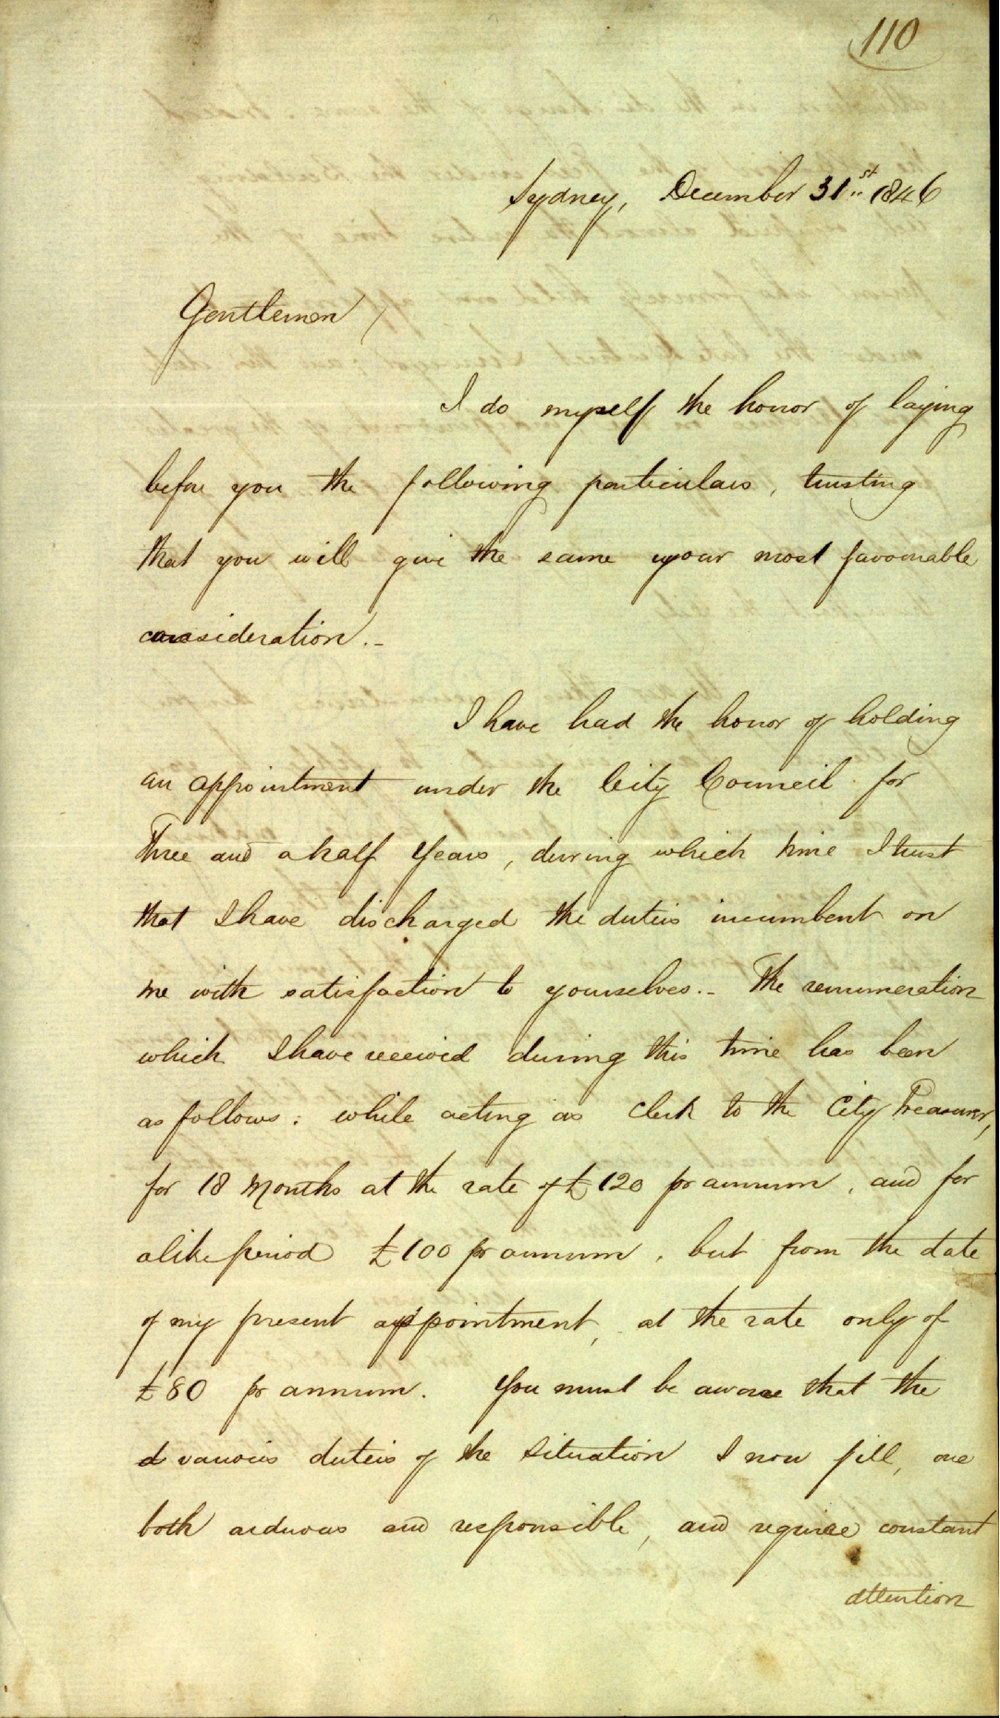 110
Sydney, December 31st 1846
Gentlemen,
I do myself the honor of laying
before you the following particulars, trusting
that you will give the same your most favourable
consideration.-
I have had the honor of holding
an appointment under the City Council for
Three and a half Years, during which time I trust
that I have discharged the duties incumbent on
me with satisfaction to yourselves.- The remuneration
which I have received during this time has been
as follows: while acting as Clerk to the City Treasurer,
for 18 Months at the rate of £120 pr annum, and for
a like period £100 pr annum, but from the date
of my present appointment, at the rate only of
£80 pr annum. You must be aware that the
various duties of the situation I now fill, are
both arduous and responsible, and require constant
attention